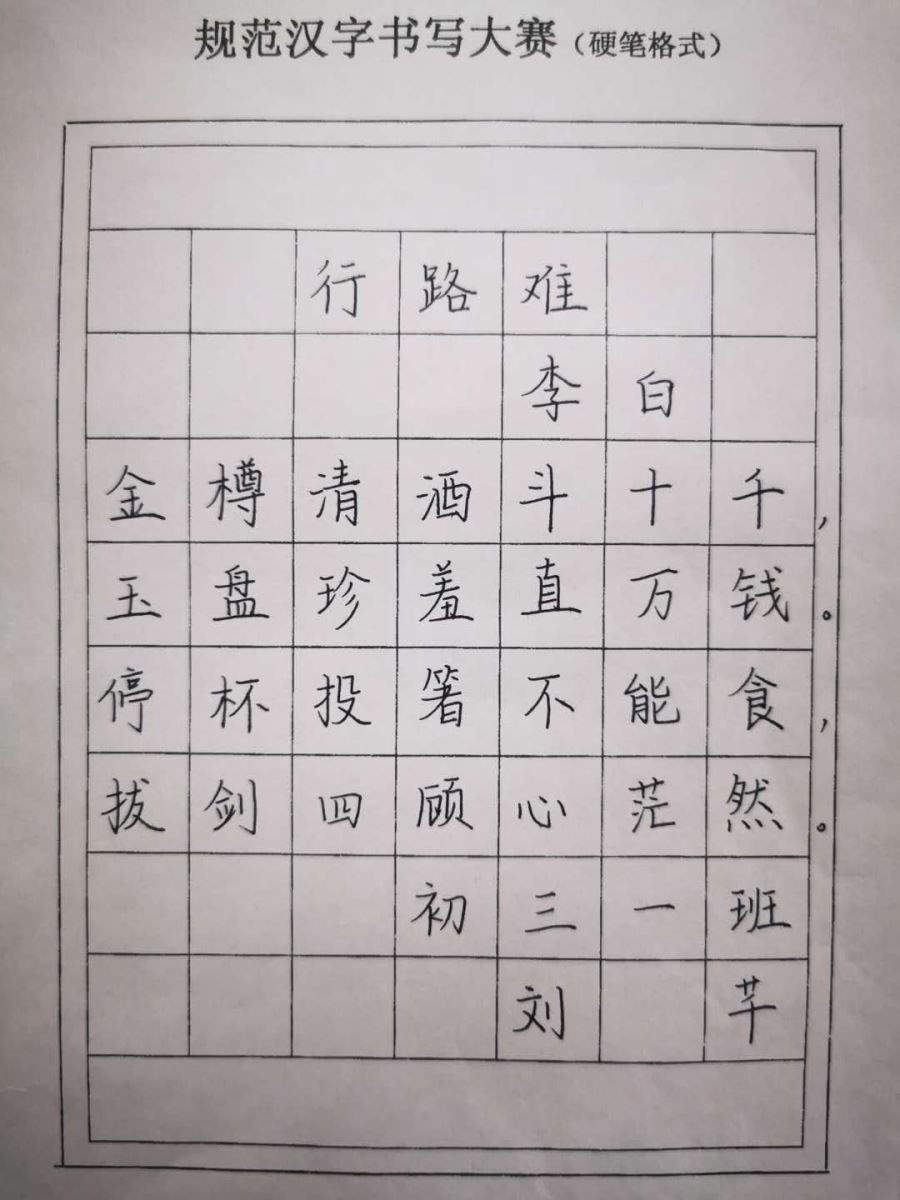 规范汉字书写大赛（硬笔格式）
行路难
李白
金樽清酒斗十千，
玉盘珍羞直万钱。
停杯投箸不能食，
拔剑四顾心茫然。
初三一班
刘 芊